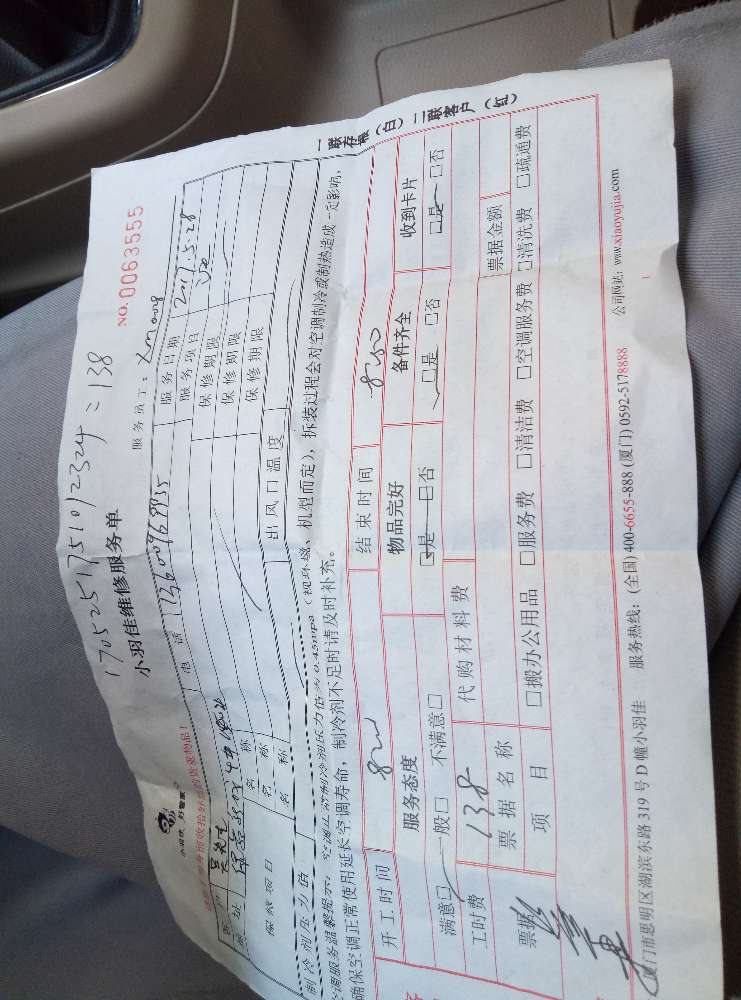 一联存根（白）二联客户（红）
1705251751012324 = 138
NO. 0063555
小羽佳维修服务单
服务员工：Xm0008
小羽佳，好管家
电话
服务日期 2017.5.28
地址
服务项目
名称
保修期限
名称
保修期限
名称
保修期限
制冷剂压力值
出风口温度
空调服务温馨提示：空调正常制冷剂压力值为0.45mpa（视环境、机型而定），拆装过程会对空调制冷或制热造成一定影响，
确保空调正常使用延长空调寿命，制冷剂不足时请及时补充。
开工时间
结束时间
服务态度
物品完好
备件齐全
收到卡片
满意□ 一般□ 不满意□
□是 □否
□是 □否
□是 □否
工时费 138
代购材料费
票据金额
票据名称
项目
□搬办公用品 □服务费 □清洁费 □空调服务费 □清洗费 □疏通费
厦门市思明区湖滨东路319号D幢小羽佳 服务热线：(全国)400-6655-888 (厦门)0592-5178888 公司网站：www.xiaoyujia.com